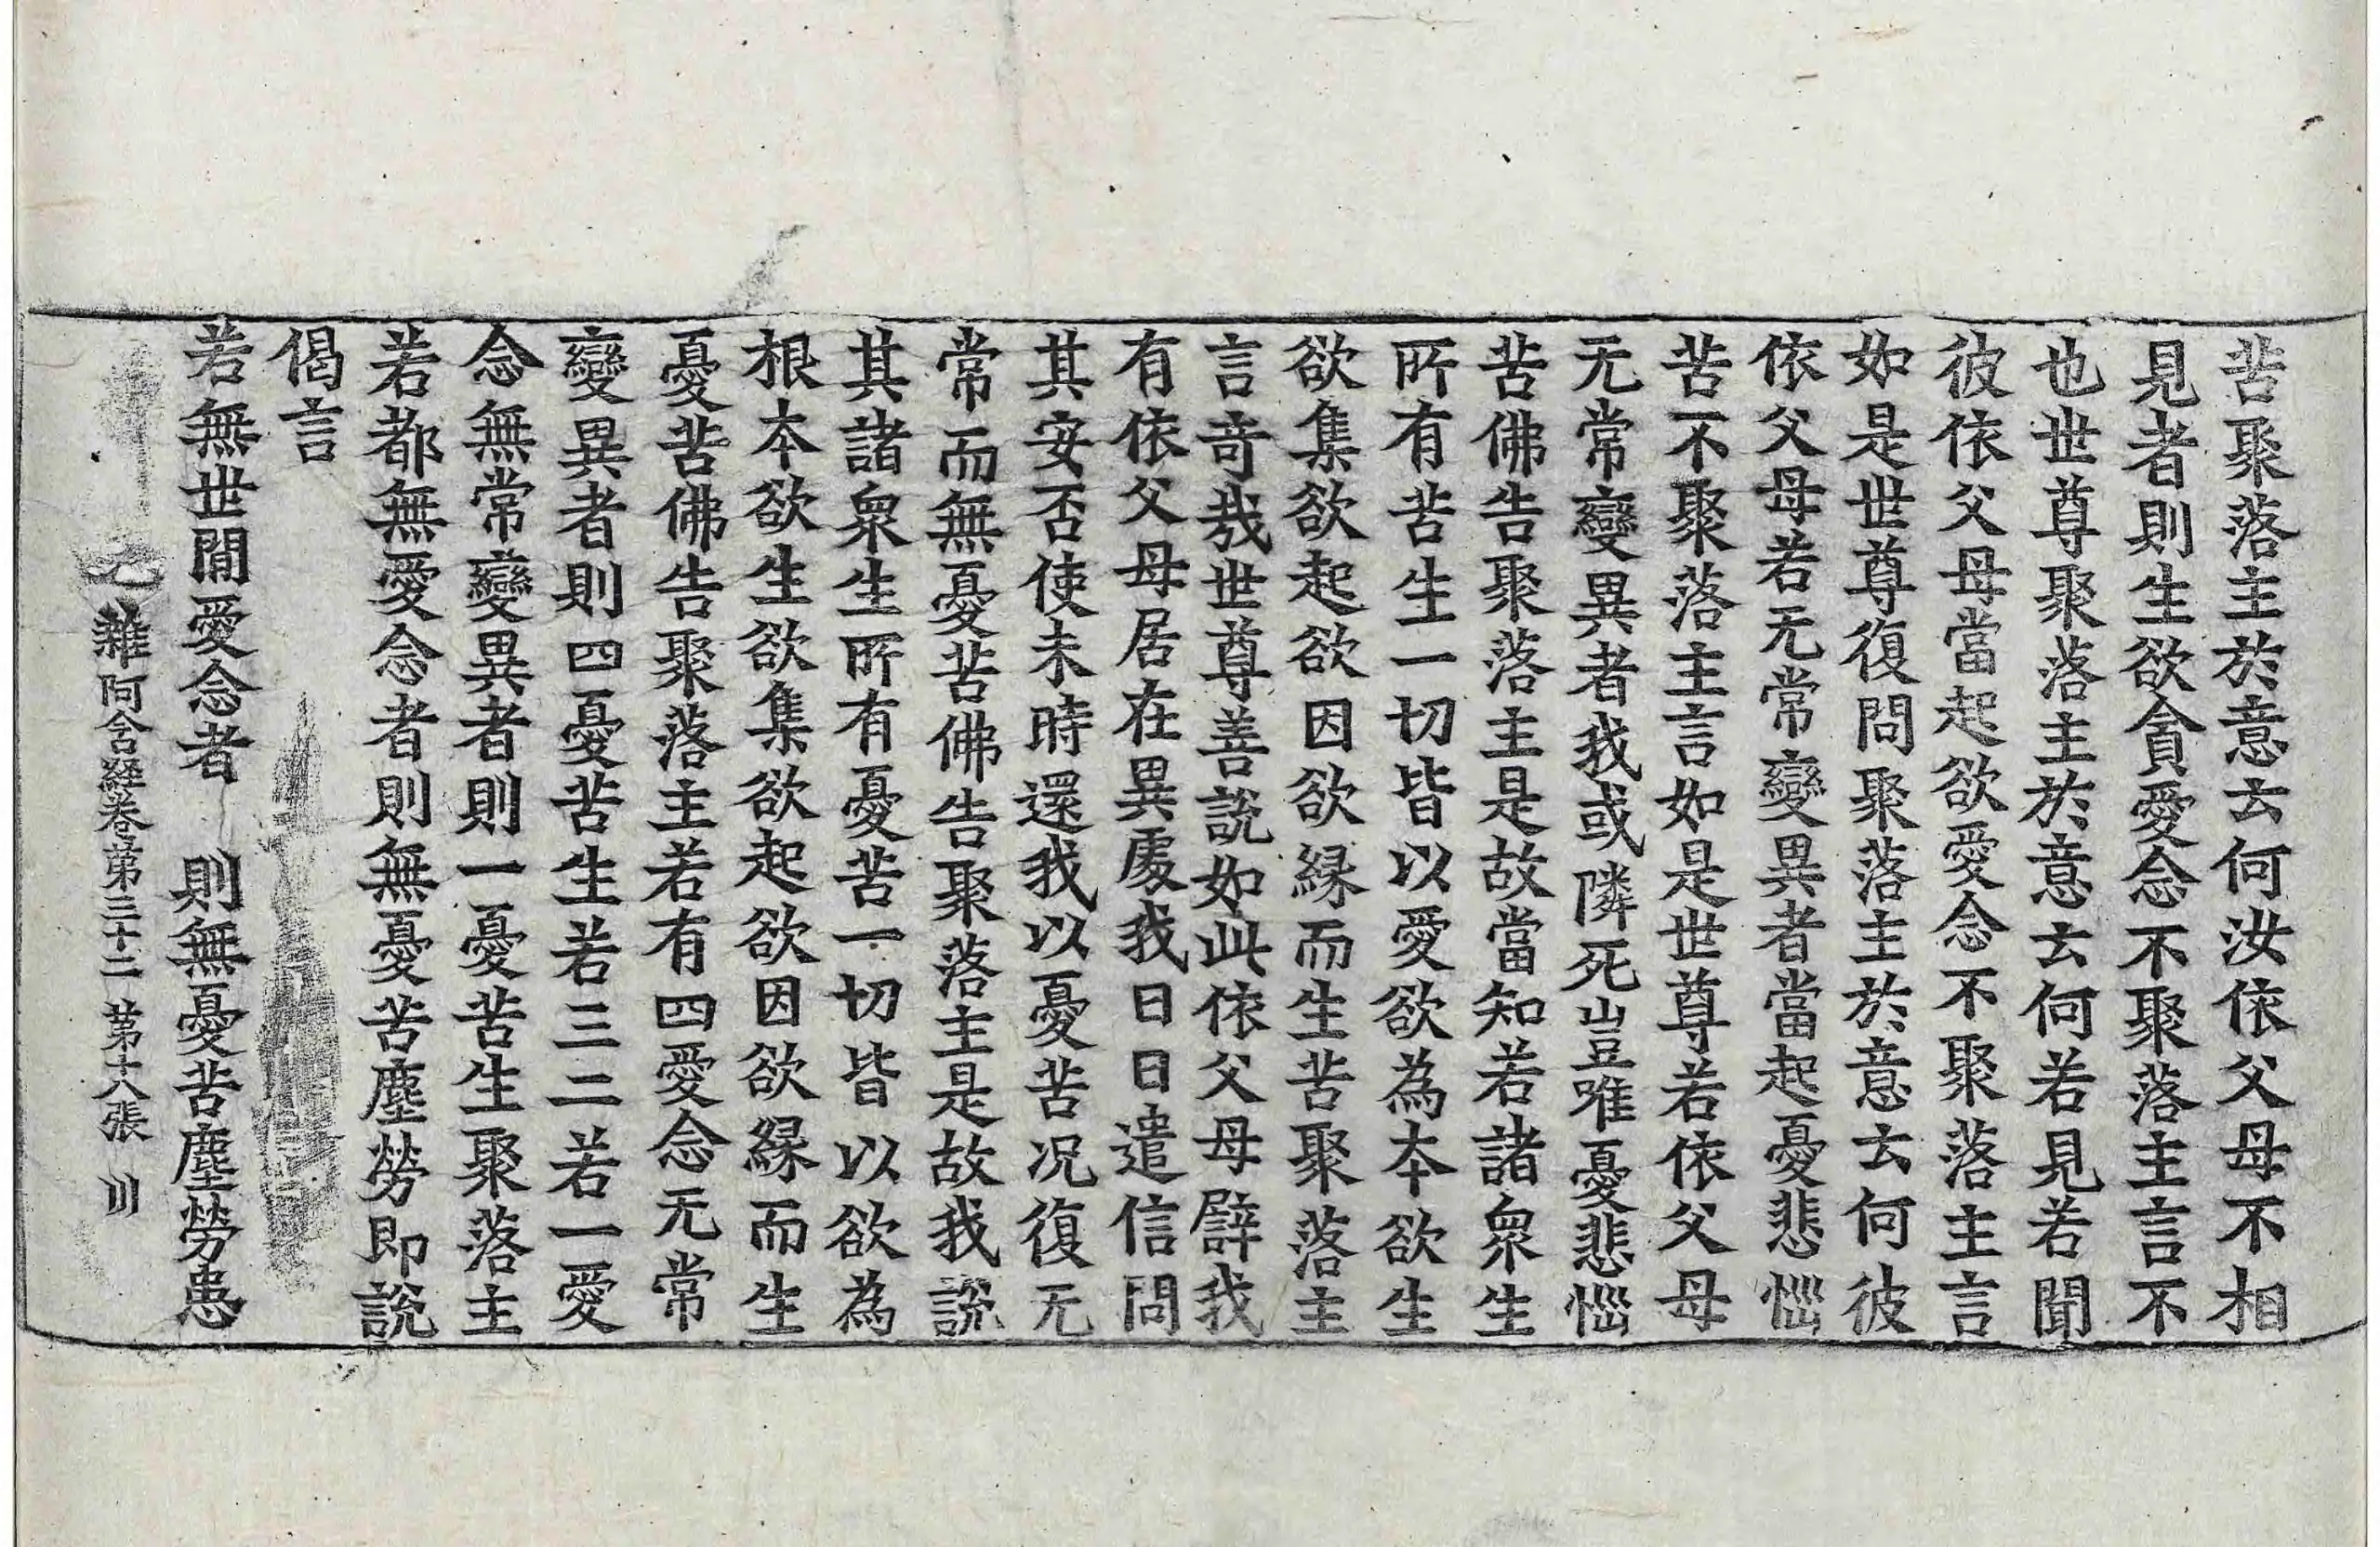 苦聚落主於意云何汝依父母不相
見者則生欲貪愛念不聚落主言不
也世尊聚落主於意云何若見若聞
彼依父母當起欲愛念不聚落主言
如是世尊復問聚落主於意云何彼
依父母若无常變異者當起憂悲惱
苦不聚落主言如是世尊若依父母
无常變異者我或隣死豈唯憂悲惱
苦佛告聚落主是故當知若諸衆生
所有苦生一切皆以愛欲為本欲生
欲集欲起欲因欲緣而生苦聚落主
言奇哉世尊善說如此依父母辟我
有依父母居在異處我日日遣信問
其安否使未時還我以憂苦况復无
常而無憂苦佛告聚落主是故我說
其諸衆生所有憂苦一切皆以欲為
根本欲生欲集欲起欲因欲緣而生
憂苦佛告聚落主若有四愛念无常
變異者則四憂苦生若三二若一愛
念無常變異者則一憂苦生聚落主
若都無愛念者則無憂苦塵勞即說
偈言
若無世間愛念者　則無憂苦塵勞患
雜阿含經卷第三十二　第十八張